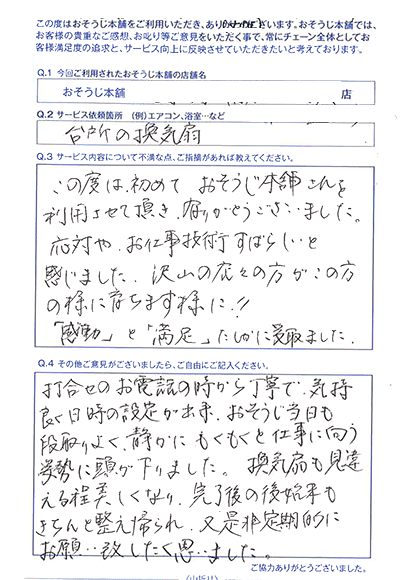 この度はおそうじ本舗をご利用いただき、ありがとうございます。おそうじ本舗では、
お客様の貴重なご感想、お叱り等ご意見をいただく事で、常にチェーン全体としてお
客様満足度の追求と、サービス向上に反映させていただきたいと考えております。
Q.1 今回ご利用されたおそうじ本舗の店舗名
おそうじ本舗 店
Q.2 サービス依頼箇所 (例)エアコン、浴室…など
台所の換気扇
Q.3 サービス内容について不満な点、ご指摘があれば教えてください。
この度は初めて おそうじ本舗さんを
利用させて頂き、ありがとうございました。
応対や、お仕事技術すばらしいと
感じました。沢山の店々の方がこの方
の様に育ちます様に!!
「感動」と「満足」たしかに受取ました。
Q.4 その他ご意見がございましたら、ご自由にご記入ください。
打合せのお電話の時から丁寧で、気持
良く日時の設定が出来、おそうじ当日も
段取りよく、静かに もくもくと仕事に向う
姿勢に頭が下りました。 換気扇も見違
える程美しくなり、完了後の後始末も
きちんと整え帰られ、又是非定期的に
お願い致したく思いました。
ご協力ありがとうございました。